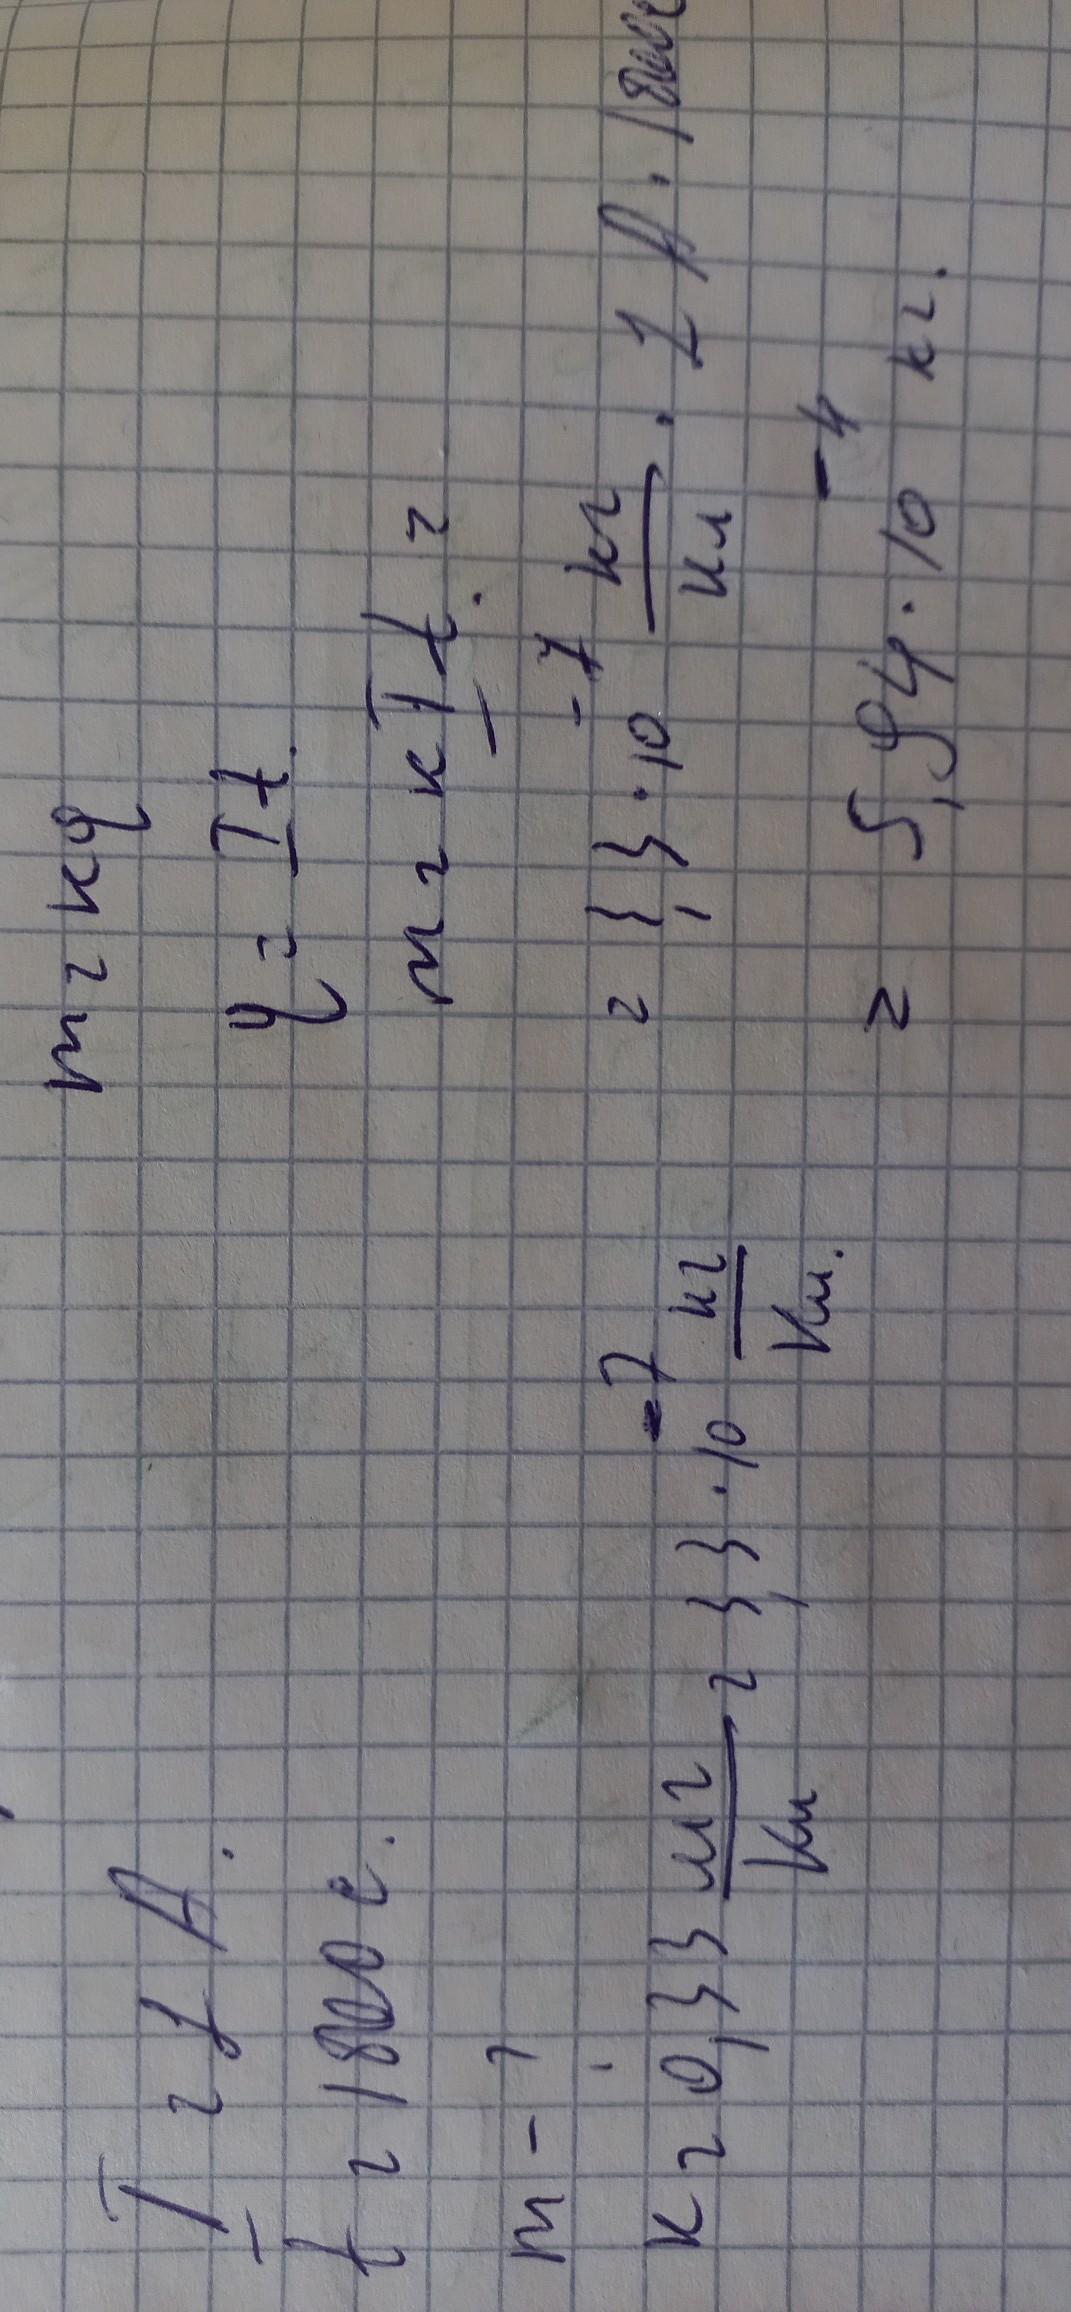 I = 1 A.
t = 1800 с.
m - ?
k = 0,33 мг/Кл = 3,3 · 10⁻⁷ кг/Кл.
m = kq
q = It.
m = kIt. =
= 3,3 · 10⁻⁷ кг/Кл · 1 A · 1800с
= 5,94 · 10⁻⁴ кг.